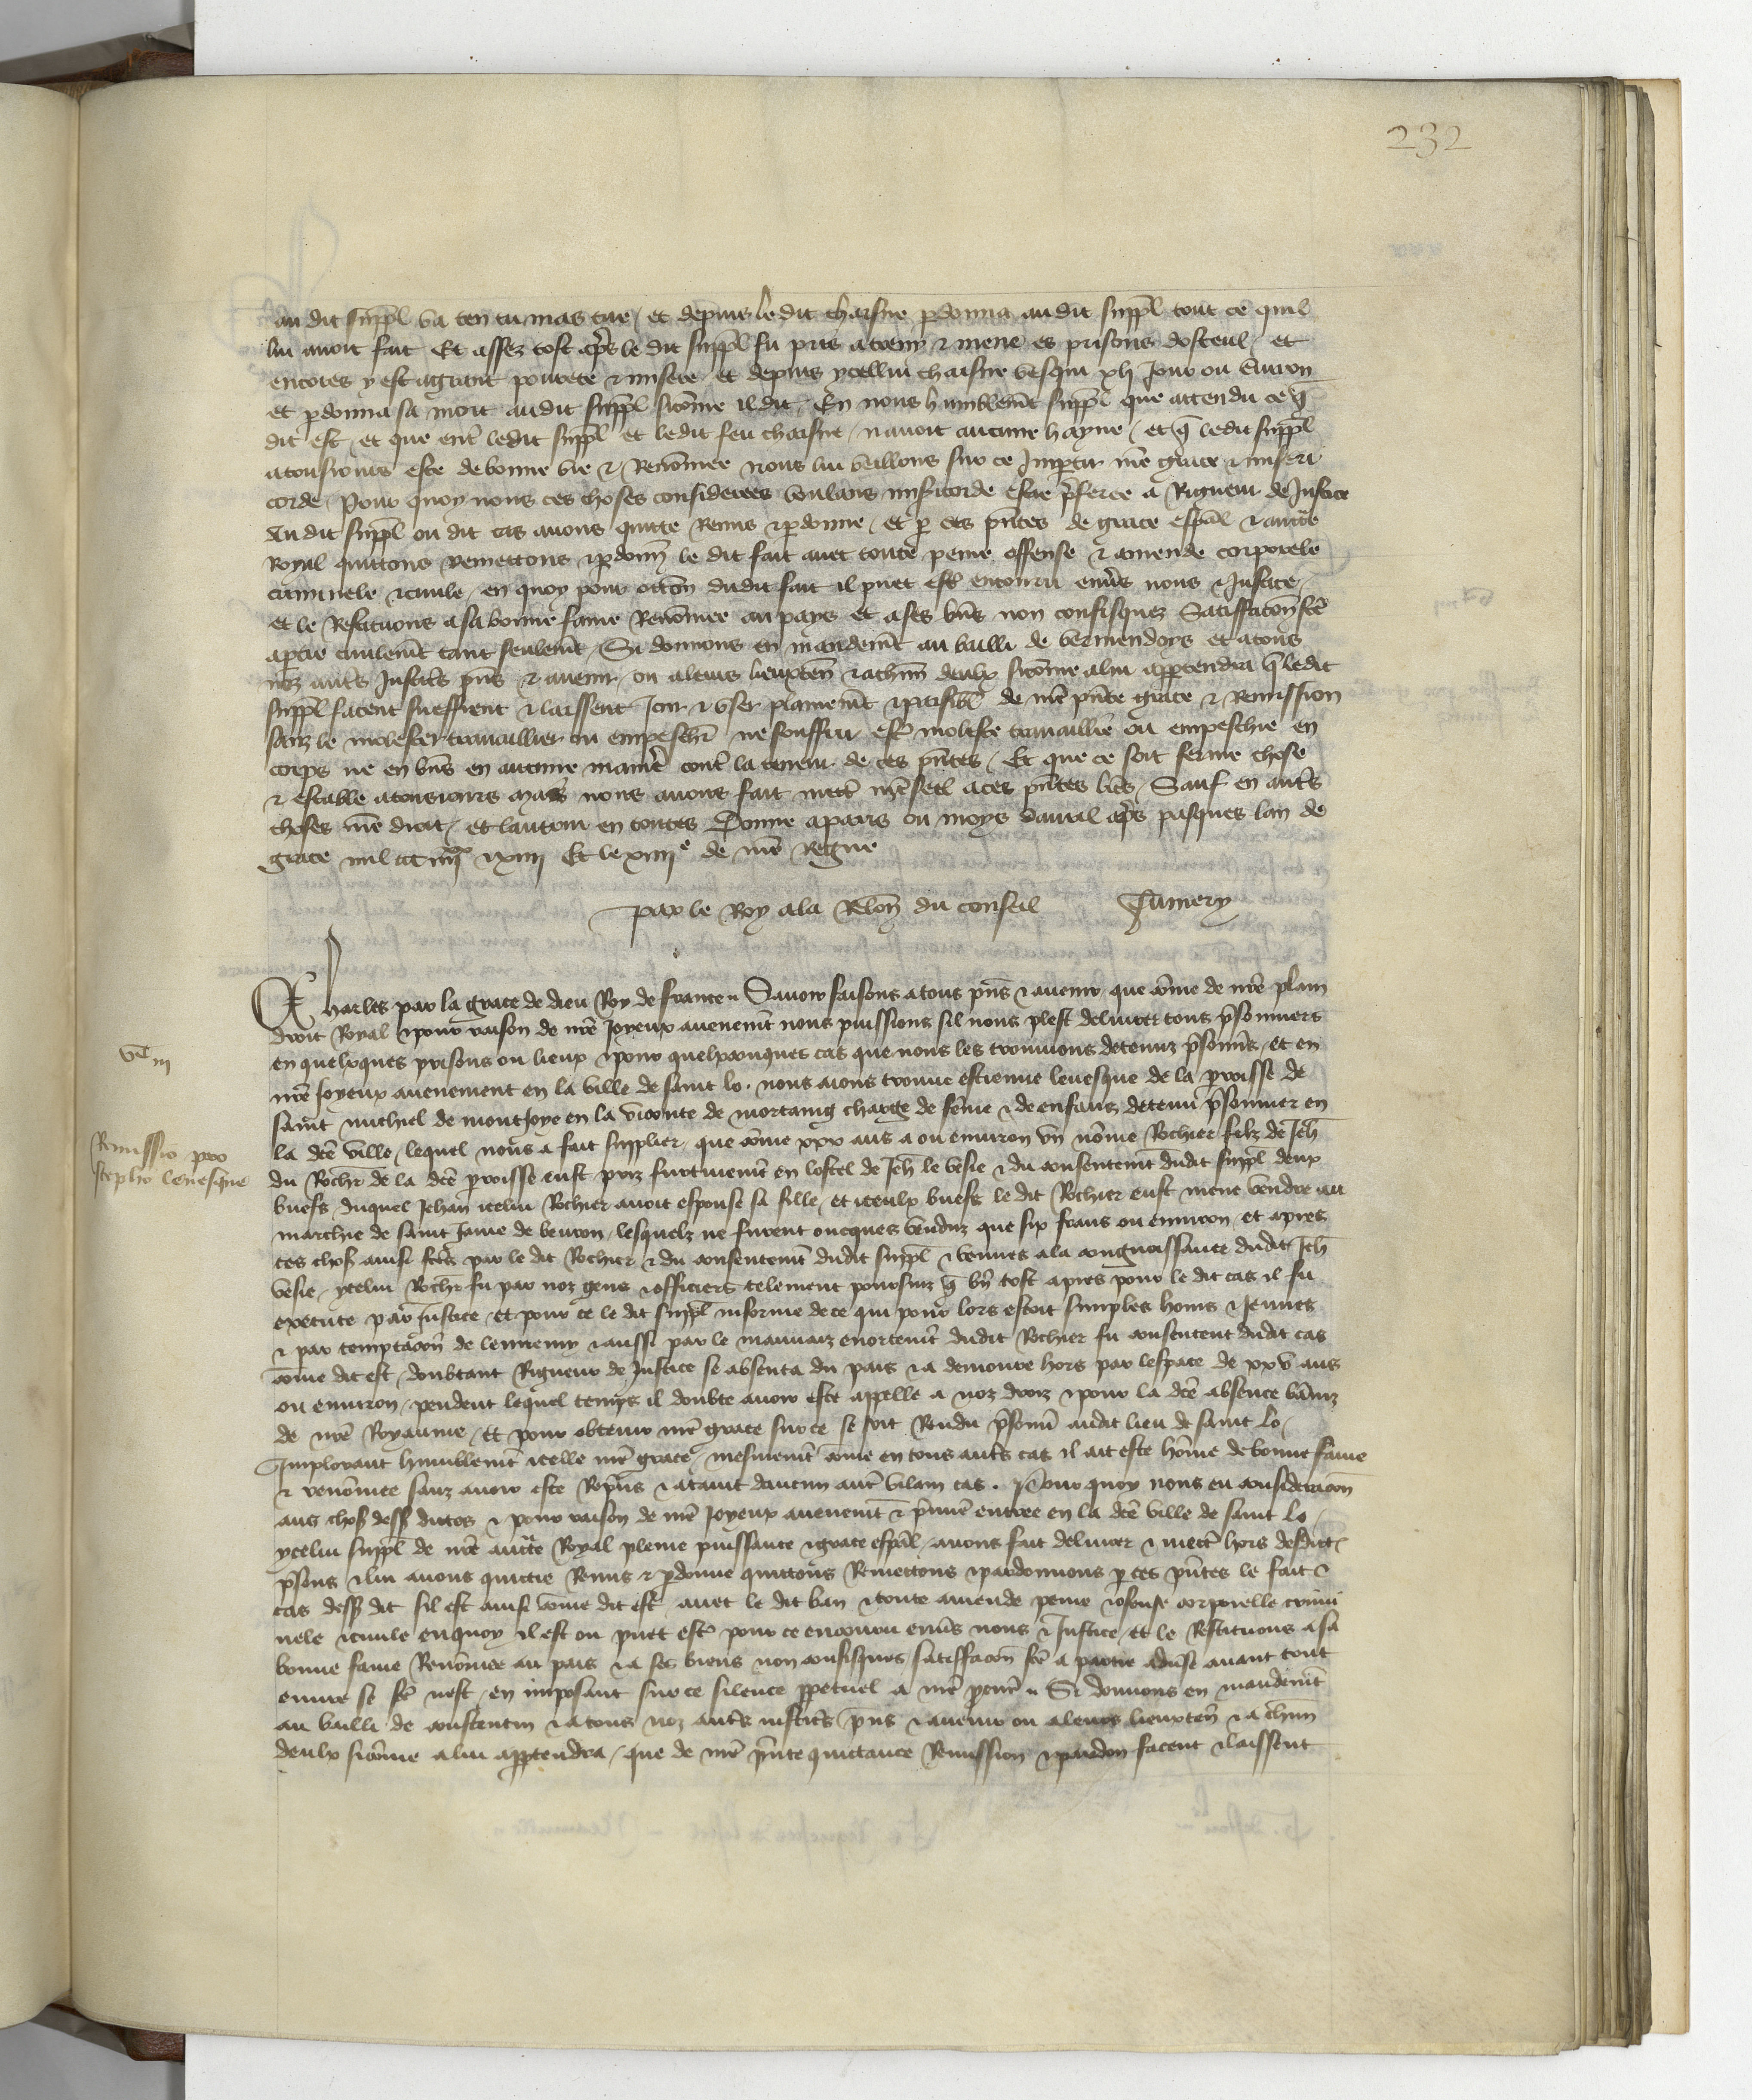 232
au dit suppl va ten tu mas tue / et depuis le dit chaisne pdonna au dit suppl tout ce quil
lui avoit fait Et assez tost aps le dit suppl fu pris a & mene es prisons dosteul / et
encores y est a grant povrete & misere et depuis ycellui chaisne vesqui xl jour ou environ
et pdonna sa mort audit suppl sicome il dit / En nous humblemt suppl que attendu ce q
dit est / et que entre ledit suppl et ledit feu chaisne / navoit aucune hayne / et q ledit suppl
a tousiours este de bonne vie & Renomee nous lui veillons sur ce Impartir nre grace & miseri
corde / Pour quoy nous ces choses considerees voulans misicorde estre pferee a Rigueur de Justice
Au dit suppl ou dit cas avons quitte Remis & pdonne / et p ces pntes de grace espal & aucte
Royal quittons remettons & pdonn le dit fait avec toute peine offense & amende corporele
criminele & civile / en quoy pour occon dudit fait il puet est encouru envs nous & Justice /
et le Restituons a sa bonne fame Renomee au pays et a ses bns non confisquez Satisffacon fce
a ptie civilemt tant seulemt / Si donnons en mandemt au bailli de vermendoys et a tous
noz auts Justics pns & avenir / ou a leurs lieuxten & a chun deulx sicome a lui apptendra q ledit
suppl facent sueffrent & laissent Joir & user plainemt & paisibl de nre pnte grace & Remission
sanz le molester travaillier ou empeschr ne souffrir est moleste travaillie ou empeschie en
corps ne en bns en aucune manie cont la teneur de ces pntes / Et que ce soit ferme chose
& estable a tousiours mais nous avons fait mett nre seel a ces pntes lres / Sauf en auts
choses nre droit / et lautrui en toutes Donne a paris ou moys davril aps pasques lan de
grace mil ccc iiii xx & xiiii Et le xiiii e de nre Regne
par le Roy a la Relon du conseil Jamery
Charles par la grace de dieu Roy de france Savoir faisons a tous pns & avenir que come de nre plain
droit Royal & pour raison de nre Joyeux avenemt nous puissions sil nous plest delivrer tous psonniers
en quelxques prisons ou lieux & pour quelxconques cas que nous les trouvions detenuz psonns / et en
nre Joyeux avenement en la ville de saint lo . nous aions trouve estienne levesque de la proisse de
saint michiel de montjoye en la viconte de mortaing charge de feme & de enfans detenu psonnier en
la dce ville / lequel nous a fait supplier que come xxv ans a ou environ un nome Rochier filz de Jeh
du Rochr de la dce proisse eust priz furtivemt en lostel de Jeh le vesie & du consentemt dudit suppl deux
buefs duquel Jehan icelui Rochier avoit espouse sa fille / et iceulx buefs le dit Rochier eust mene vendre au
marchie de saint Jame de beuron / lesquelz ne furent oncques venduz que six frans ou environ / et apres
ces chos ainsi fces par le dit Rochier & du consentemt dudit suppl & venues a la congnoissance dudit Jeh
vesie / ycelui Rochr fu par noz gens & officiers telement poursuiz q bn tost apres pour le dit cas il fu
execute par justice / et pour ce le dit suppl informe de ce qui pour lors estoit simples homs & jeunes
& par temptacon de lennemy & aussi par le mauvaiz enortemt dudit Rochier fu consentent dudit cas
come dit est / doubtant Rigueur de Justice se absenta du pais & a demoure hors par lespace de xxv ans
ou environ / pendent lequel temps il doubte avoir este appelle a noz droiz & pour la dce absence baniz
de nre Royaume / Et pour obtenir nre grace sur ce se soit Rendu psonn audit lieu de saint Lo /
Implorant humblemt icelle nre grace / mesmemt come en tous auts cas il ait este home de bonne fame
& renomee sanz avoir este Repns & ataint daucun aut vilain cas . Pour quoy nous eu consideracon
aus chos dess dictes & pour raison de nre Joyeux avenemt & pmie entree en la dce ville de saint Lo /
ycelui suppl de nre aucte Royal pleine puissance & grace espal / avons fait delivrer & mectre hors desdict
psons & lui avons quictie Remis & pdonne quictons Remettons & pardonnons p ces pntes le fait &
cas dess dit sil est ainsi come dit est / avec le dit ban & toute amende peine & ofense corporelle crimi
nele & civile en quoy il est ou puet est pour ce encouru envs nous & Justice / et le Restituons a sa
bonne fame Renomee au pais & a ses biens non confisquez satisfacon fce a partie advse avant tout
euvre se fce nest / en imposant sur ce silence ppetuel a nre pcur Si donnons en mandemt
au bailli de constentin & a tous noz auts justics pns & avenir ou a leurs lieuxten & a chun
deulx sicome a lui apptendra / que de nre pnte quictance Remission & pardon facent & laissent
Remissio pro
stepho levesque